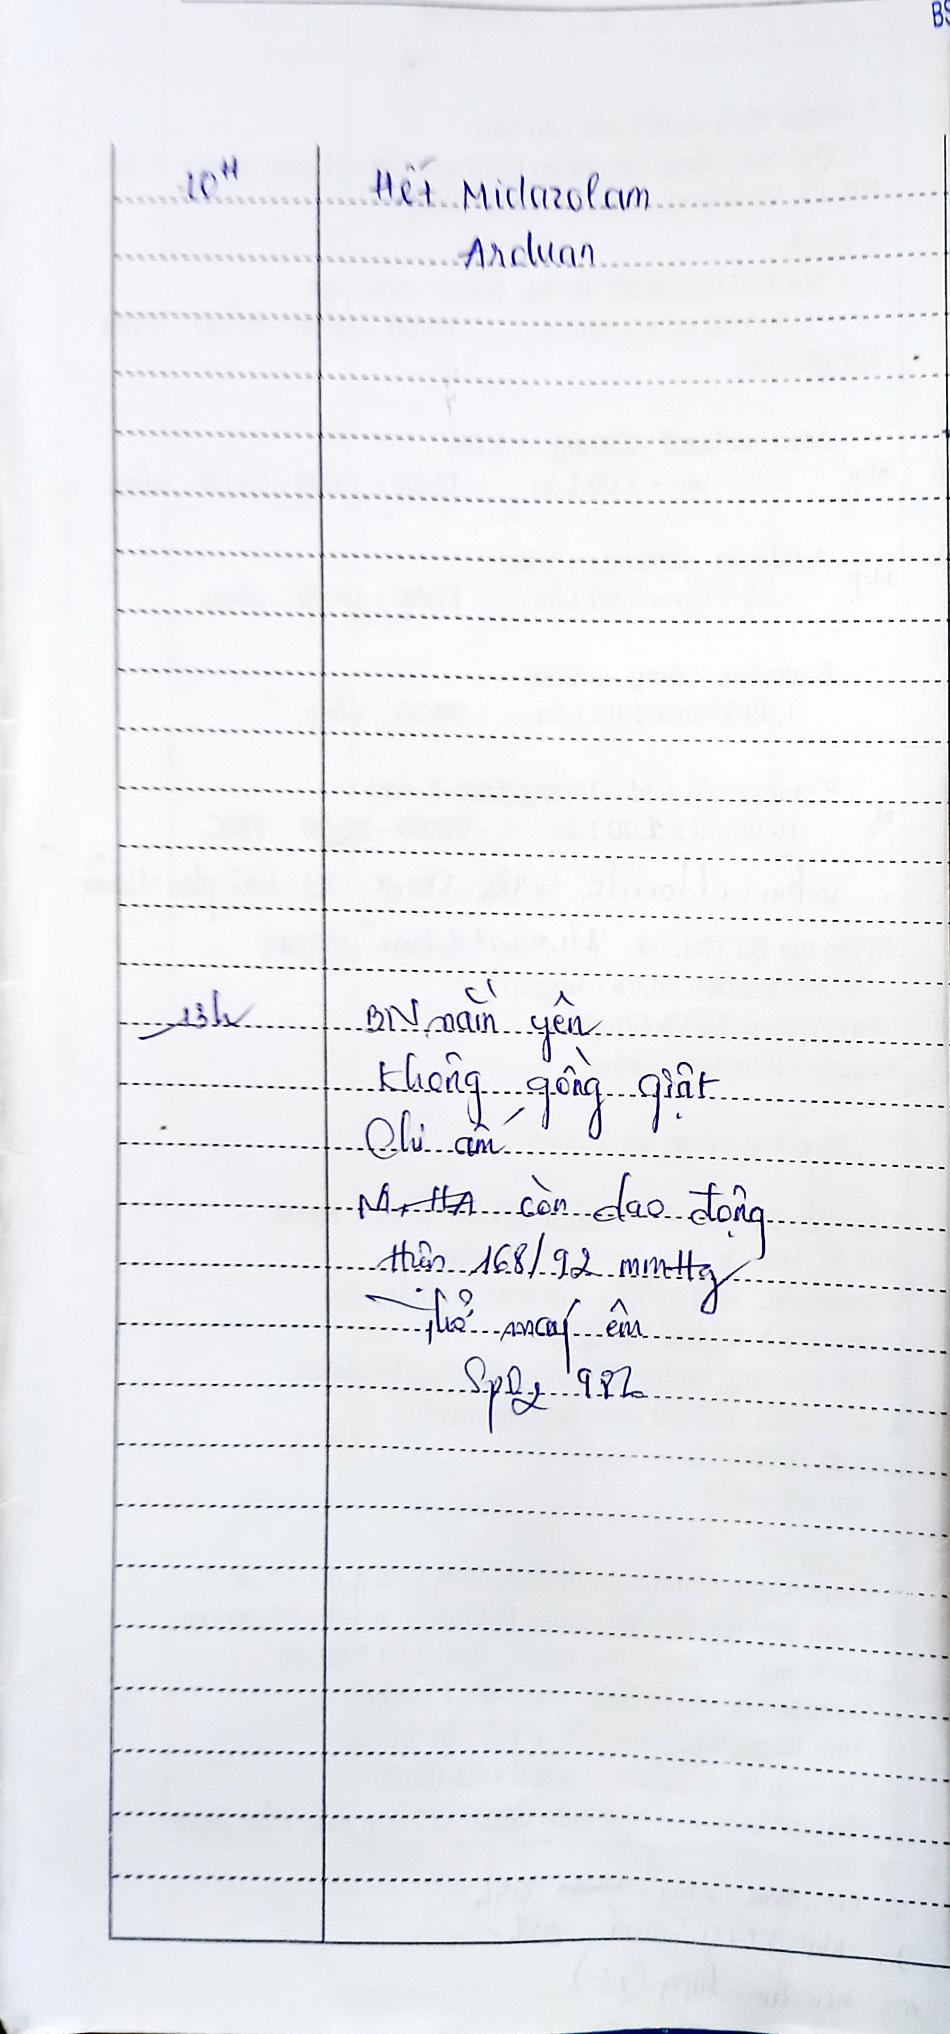 BS
10H Hết Midazolam
Arduan
13h BN nằm yên
Không gồng giật
Chi ấm
M, HA còn dao động
trên 168/92 mmHg
Thở máy êm
SpO2 98%